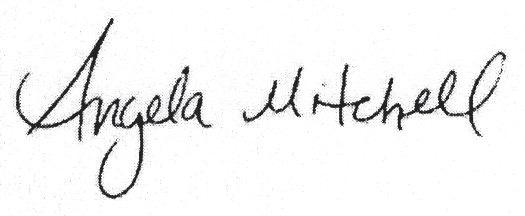 Angela Mitchell